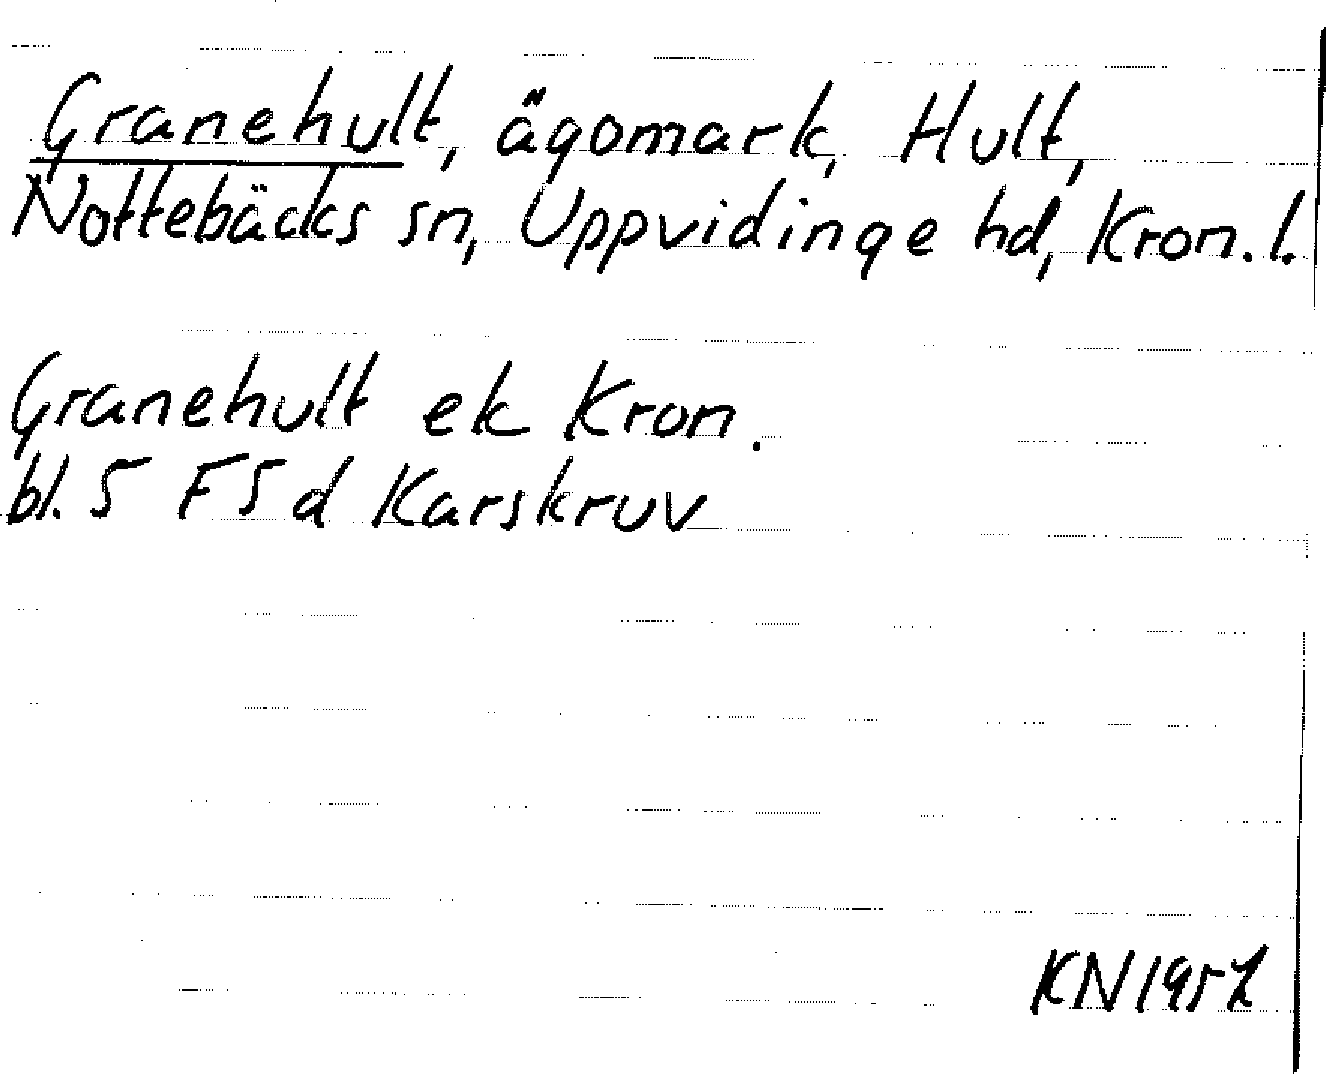 Granehult, ägomark, Hult,
Nottebäcks sn, Uppvidinge hd, Kron. l.
Granehult ek Kron.
bl. 5 F 5 d Karskruv
KN 1957